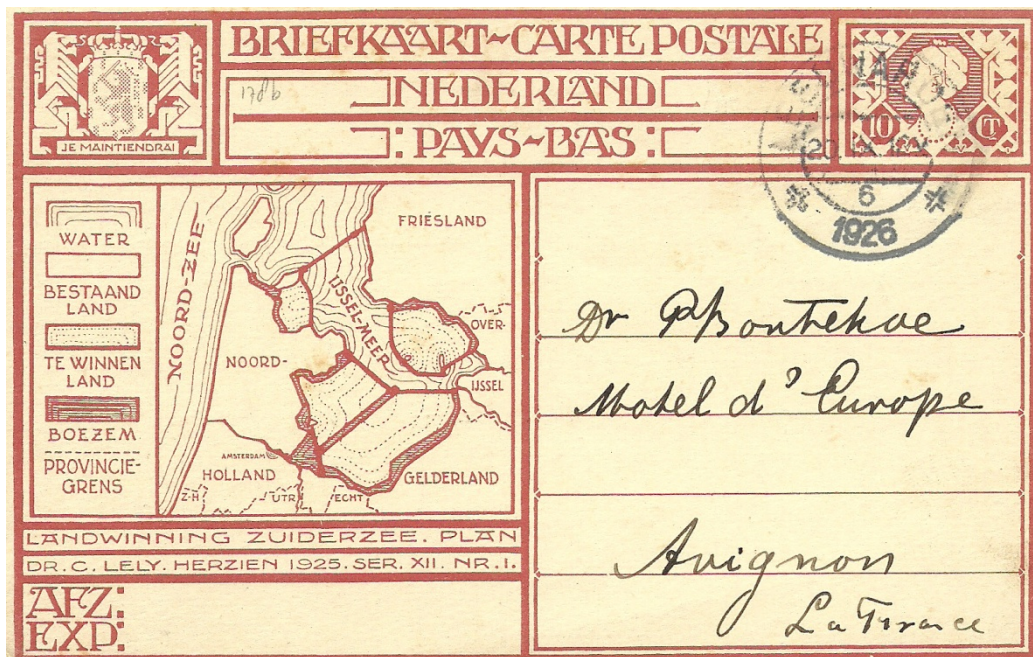 BRIEFKAART~CARTE POSTALE
NEDERLAND
: PAYS~BAS :
JE MAINTIENDRAI
178b
10 CT
20. 12
6
1926
WATER
BESTAAND
LAND
TE WINNEN
LAND
BOEZEM
PROVINCIE-
GRENS
NOORD-ZEE
FRIESLAND
IJSSEL-MEER
OVER-
IJSSEL
NOORD-
HOLLAND
AMSTERDAM
GELDERLAND
Z-H
UTR
ECHT
LANDWINNING ZUIDERZEE. PLAN
DR. C. LELY. HERZIEN 1925. SER. XII. NR. 1.
AFZ:
EXP:
Dr P Bontekoe
Hotel d'Europe
Avignon
La France